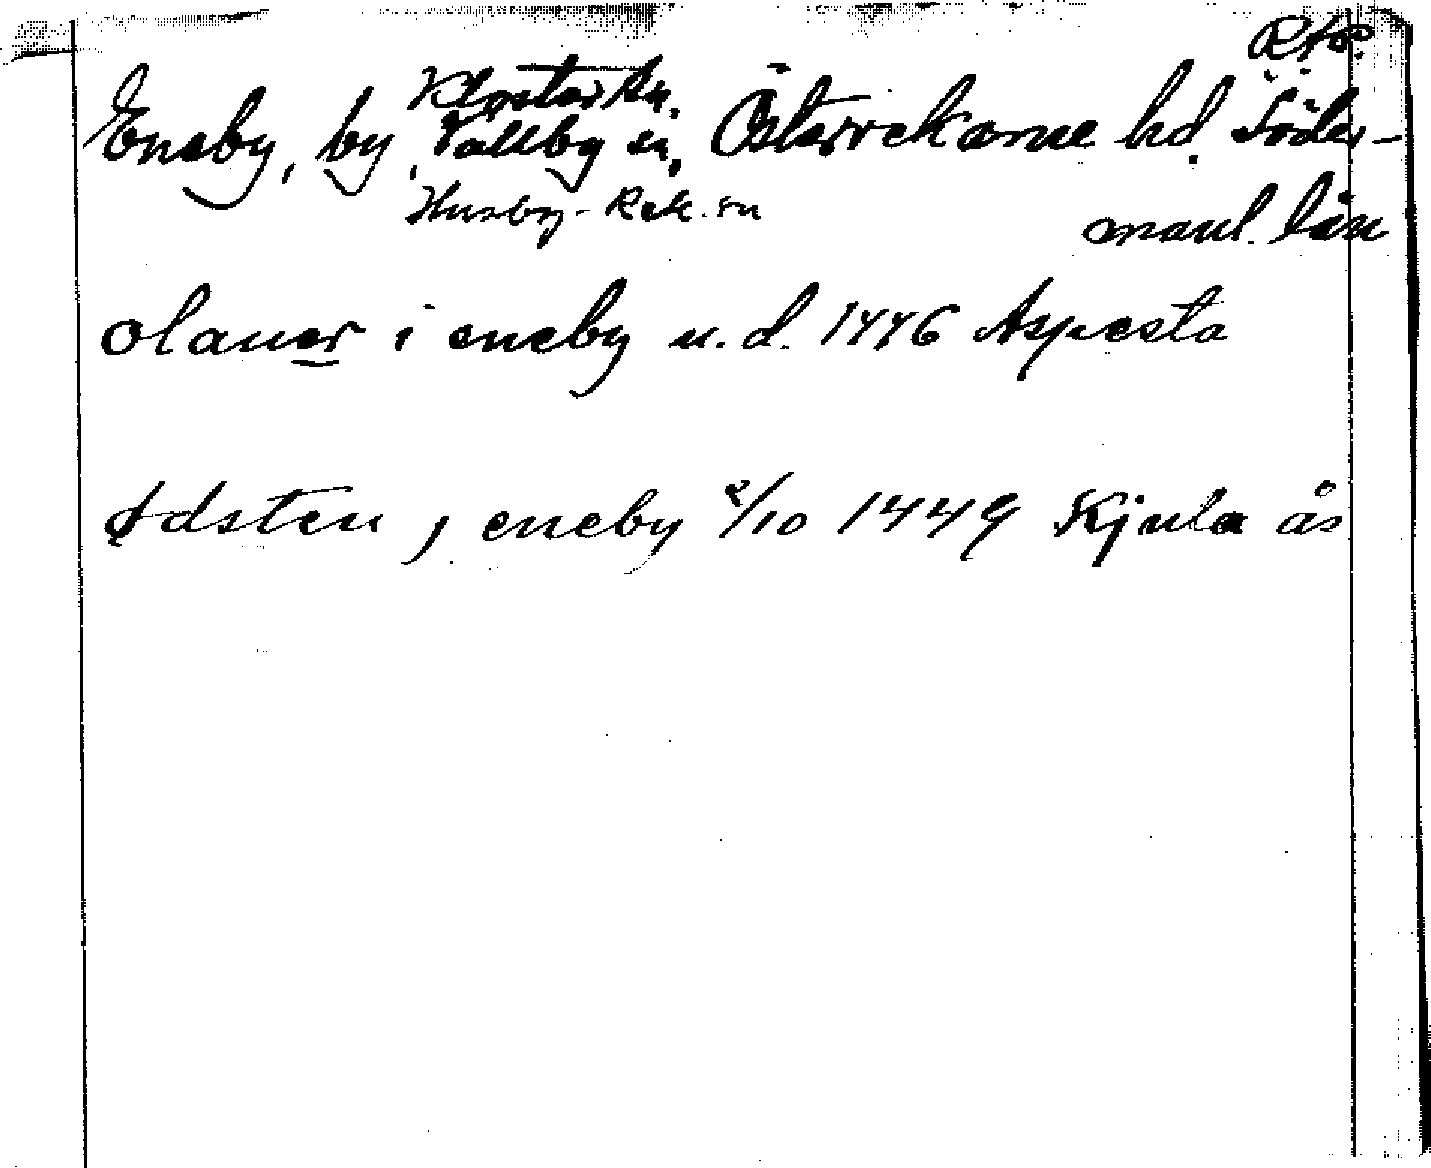 Eneby, by, Vallby sn, Österrekarne hd. Söder-
Kloster sn.
Husby-Rek. sn
manl. län
olauer i eneby u. d. 1446 Aspesta
Ødsten j eneby 2/10 1449 Kjula ås